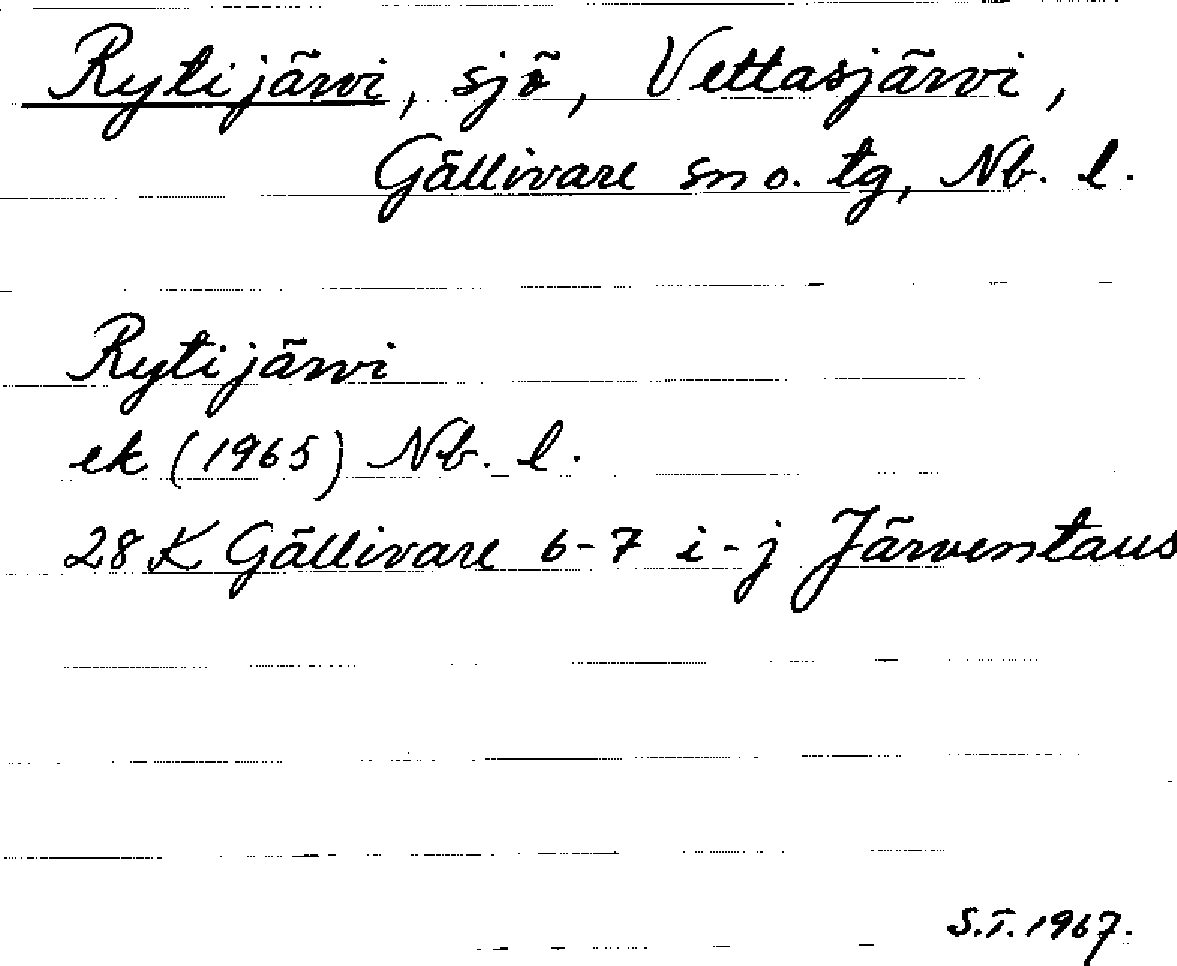 Rytijärvi, sjö, Vettasjärvi,
Gällivare sn o. tg, Nb. l.
Rytijärvi
ek (1965) Nb. l.
28 K Gällivare 6-7 i-j Järventaus
S.T. 1967.